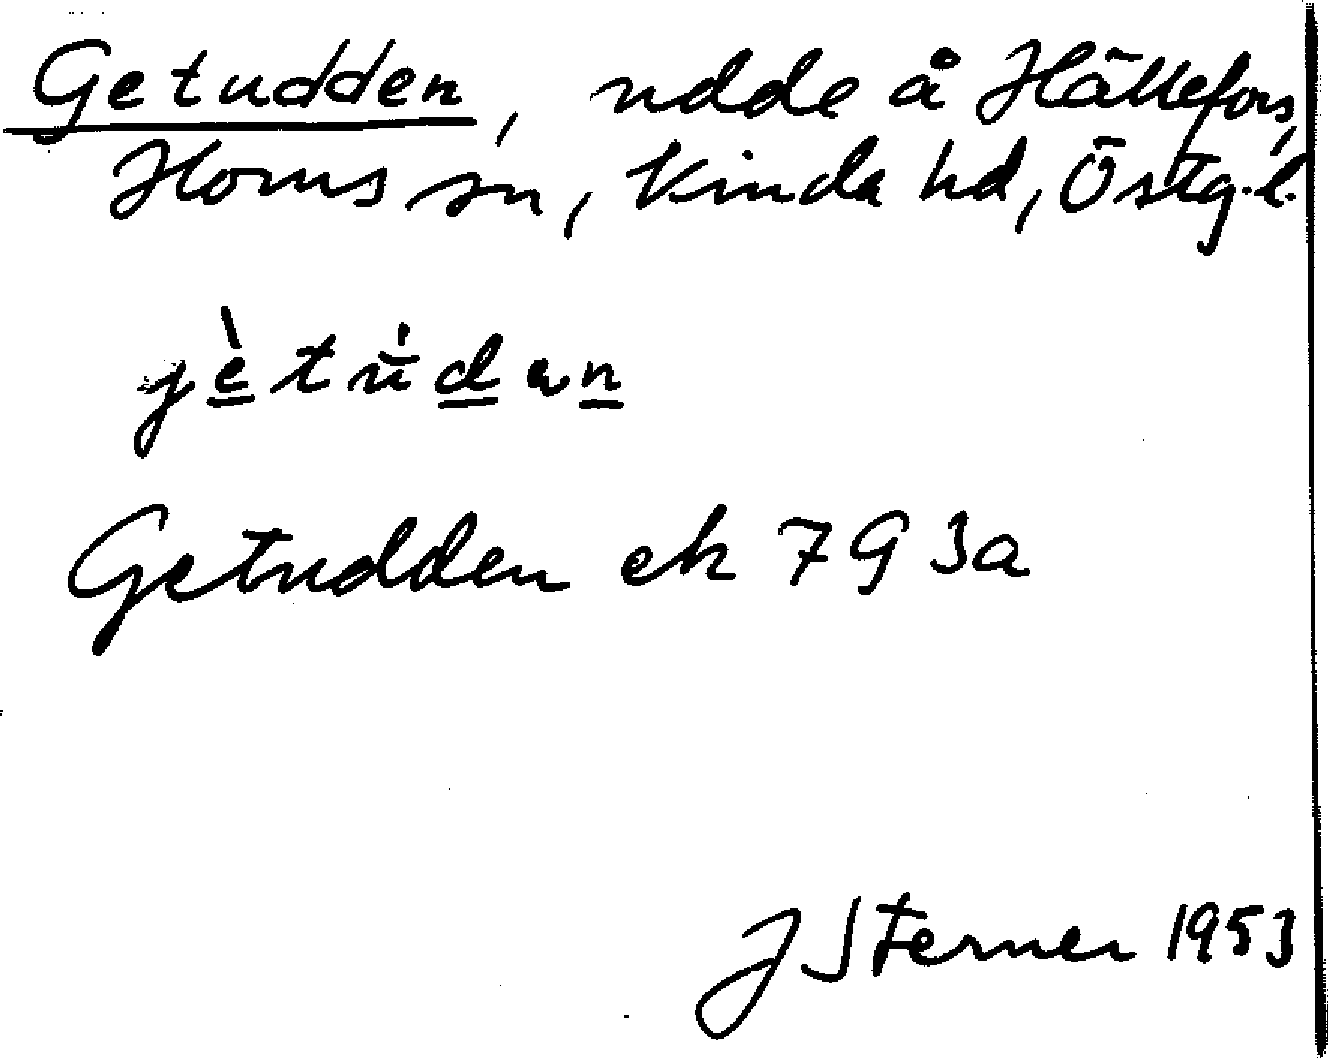 Getudden, udde å Hällefors,
Horns sn, Kinda hd, Östg.l.
jètu̇dən
Getudden ek 793a
J Sterner 1953